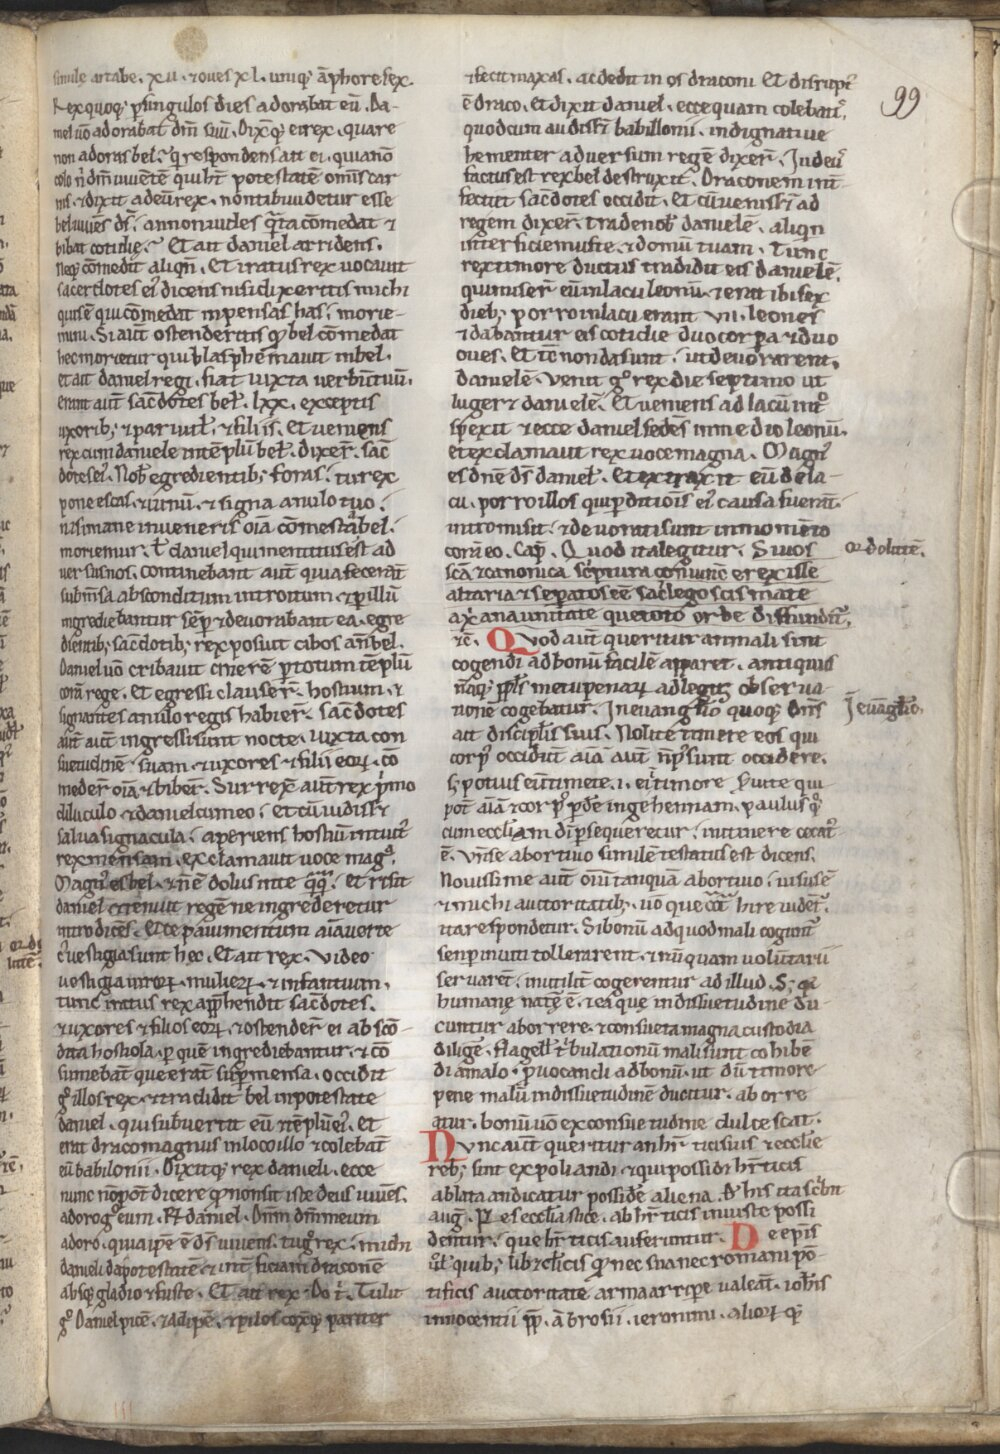 simile artabe. xii. ⁊ oues xl. uiniq; āphore sex.
Rex quoq; p singulos dies adorabat eū. Da-
niel uō adorabat dm̄ suū. Dixitq; ei rex. quare
non adoras bel. qi respondens ait ei. quia nō
colo n̄ dm̄ uiuētē qui ht̄ potestatē omīs car
nis. ⁊ dixit ad eū rex. nōn tibi uidetur esse
bel uiuēs ds̄. an non uides q̄nta cōmedat ⁊
bibat cotidie. Et ait daniel arridens.
neq; cōmedit aliqn̄. Et iratus rex uocauit
sacerdotes ei dicens nisi dixeritis michi
quis ē qui cōmedat inpensas has. morie-
mini. Si aūt ostenderitis q bel cōmedat
hec morietur qui blasphēmauit in bel.
et ait daniel regi. fiat iuxta uerbū tuū.
erant aūt sac̄dotes bel. lxx. exceptis
uxorib; ⁊ paruul ⁊ filiis. Et ueniens
rex cum daniele in tēplū bel. dixer̄ sac̄
dotes ei. Nob egredientib; foras. tu rex
pone escas. ⁊ uinū. ⁊ signa anulo tuo.
nisi mane inueneris oīa cōmesta bel.
moriemur. ł daniel qui mentitus est ad
uersus nos. Continebant aūt quia fecerāt
sub m̄sa absconditum introitum ⁊ p illū
ingrediebantur sēp ⁊ deuorabant ea. egre
dientib; sac̄dotib; rex posuit cibos an̄ bel.
Daniel uō cribauit cinerē p totum tēplū
corā rege. Et egressi clauser̄ hostium. ⁊
signantes anulo regis habier̄. sac̄dotes
aūt ingressi sunt nocte. iuxta con
suetudinē suam ⁊ uxores ⁊ filii eoꝝ. cō
meder̄ oīa ⁊ biber̄. Surrex̄ aūt rex p̄mo
diluculo ⁊ daniel cum eo. et cū uidisset
salua signacula. aperiens hostiū intuit
rex mensam. exclamauit uoce mag.
Magn' es bel. ⁊ n̄ ē dolus in te q̄q̄. Et risit
daniel ⁊ tenuit regē ne ingrederetur
intro dicēs. Ecce pauimentum aīaduerte
c' uestigia sunt hec. Et ait rex. Video
uestigia uiroꝝ. mulierꝝ ⁊ infantium.
tunc iratus rex app̄hendit sac̄dotes.
⁊ uxores ⁊ filios eoꝝ. ⁊ ostender̄ ei abscō-
dita hostiola. p quē ingrediebantur. ⁊ cō
sumebāt que erāt sup mensa. occidit
g illos rex. ⁊ tradidit bel in potestate
daniel. qui subuertit eū ⁊ tēplū ei. Et
erat draco magnus in loco illo ⁊ colebāt
eū babilonii. Dixitq; rex danieli. ecce
nunc nō pot dicere q non sit iste deus uiuēs.
adora g eum. R̄ daniel. Dnm̄ dm̄ meum
adoro. quia ipē ē ds̄ uiuens. tu g rex. michi
danieli da potestatē ⁊ int̄ficiam draconē
absq; gladio ⁊ fuste. Et ait rex. Do t. Tulit
g Daniel picē. ⁊ adipē. ⁊ pilos coxitq; pariter
⁊ fecit maxas. ac dedit in os draconi Et disrupt
ē draco. Et dixit daniel. ecce quam colebati,
99
quod cum audissēt babillonii. indignati ue
hementer aduersum regē dixer̄. Iudeus
factus est rex bel destruxit. Draconem int̄-
fecit sac̄dotes occidit. Et cū uenissēt ad
regem dixer̄. trade nob danielē. alioqn
interficiemus te. ⁊ domū tuam. Tunc
rex timore ductus tradidit eis danielē.
qui miser̄ eū in lacū leonū. ⁊ erat ibi sex
dieb; porro in lacu erant. vii. leones
⁊ dabantur eis cotidie duo corpa ⁊ duo
oues. Et tc̄ non data sunt. ut deuorarent
danielē. Venit g rex die septimo ut
lugeret danielē. Et ueniens ad lacū int̄
spexit ⁊ ecce daniel sedēs in medio leonū.
et exclamauit rex uoce magna. Magn'
es dnē ds̄ daniel. Et extraxit eū de la-
cu. porro illos qui pditiōis ei causa fuerāt
intromisit. ⁊ deuorati sunt in momēto
corā eo. Cap. Quod ita legitur. Si uos
or dolitē.
scā ⁊ canonica scptura cōmunē erexisse
altaria ⁊ sepatos eē sac̄legos cismate
a xiana unitate que toto orbe diffundit,
rē. Quod aūt queritur an mali sint
cogendi ad bonū facile apparet. antiquis
naq; pplis metu penaꝝ ad legis obserua-
tionē cogebatur. In euangłio quoq; Dn̄s
I euāglio.
ait discipłis suis. Nolite timere eos qui
corp' occidūt aīā aūt n̄ p̄sunt occidere.
s; potius eū timete. i. ei timore seruite qui
pot aīā ⁊ corp' pdē in gehennam. paulus q
cum eccłiam di psequeretur. in itinere cecat
ē. Vn̄ se abortiuo similē testatus est dicens.
Nouissime aūt oīū tanquā abortiuo. uisus ē
⁊ michi auctoritatib; uō que cōt hire uidet
ita respondetur. Si bonū ad quod mali cogunt
senp inuiti tollerarent. ⁊ nūquam volūtarii
seruarent. inutilit̄ cogerentur ad illud. S; qa
humane nat̄e ē. ⁊ ea que in dissuetudine du-
cuntur aborrere. ⁊ consueta magna custodia
diligē. flagell tbulationū mali sunt cohibē
di a malo. puocandi ad bonū. ut dū timore
pene malū in dissuetudinē ducitur. aborre
atur. bonū uō ex consuetudine dulcescat.
Nunc aūt queritur an hr̄ticis suis ⁊ ecclie
reb; sint expoliandi. ⁊ qui possidēt hr̄ticis
ablata an dicatur possidē aliena. De his ita sc̄bit
aug. Res ecclesiastice. ab hr̄ticis iniuste possi
dentur. que hr̄ticis auferuntur. De epis
ul quib; lib; clicis q nec sua nec romani po-
tificis auctoritate arma arripe ualeāt. iohīs
innocentii pp. ābrosii. ieronimi. alioꝝ q;